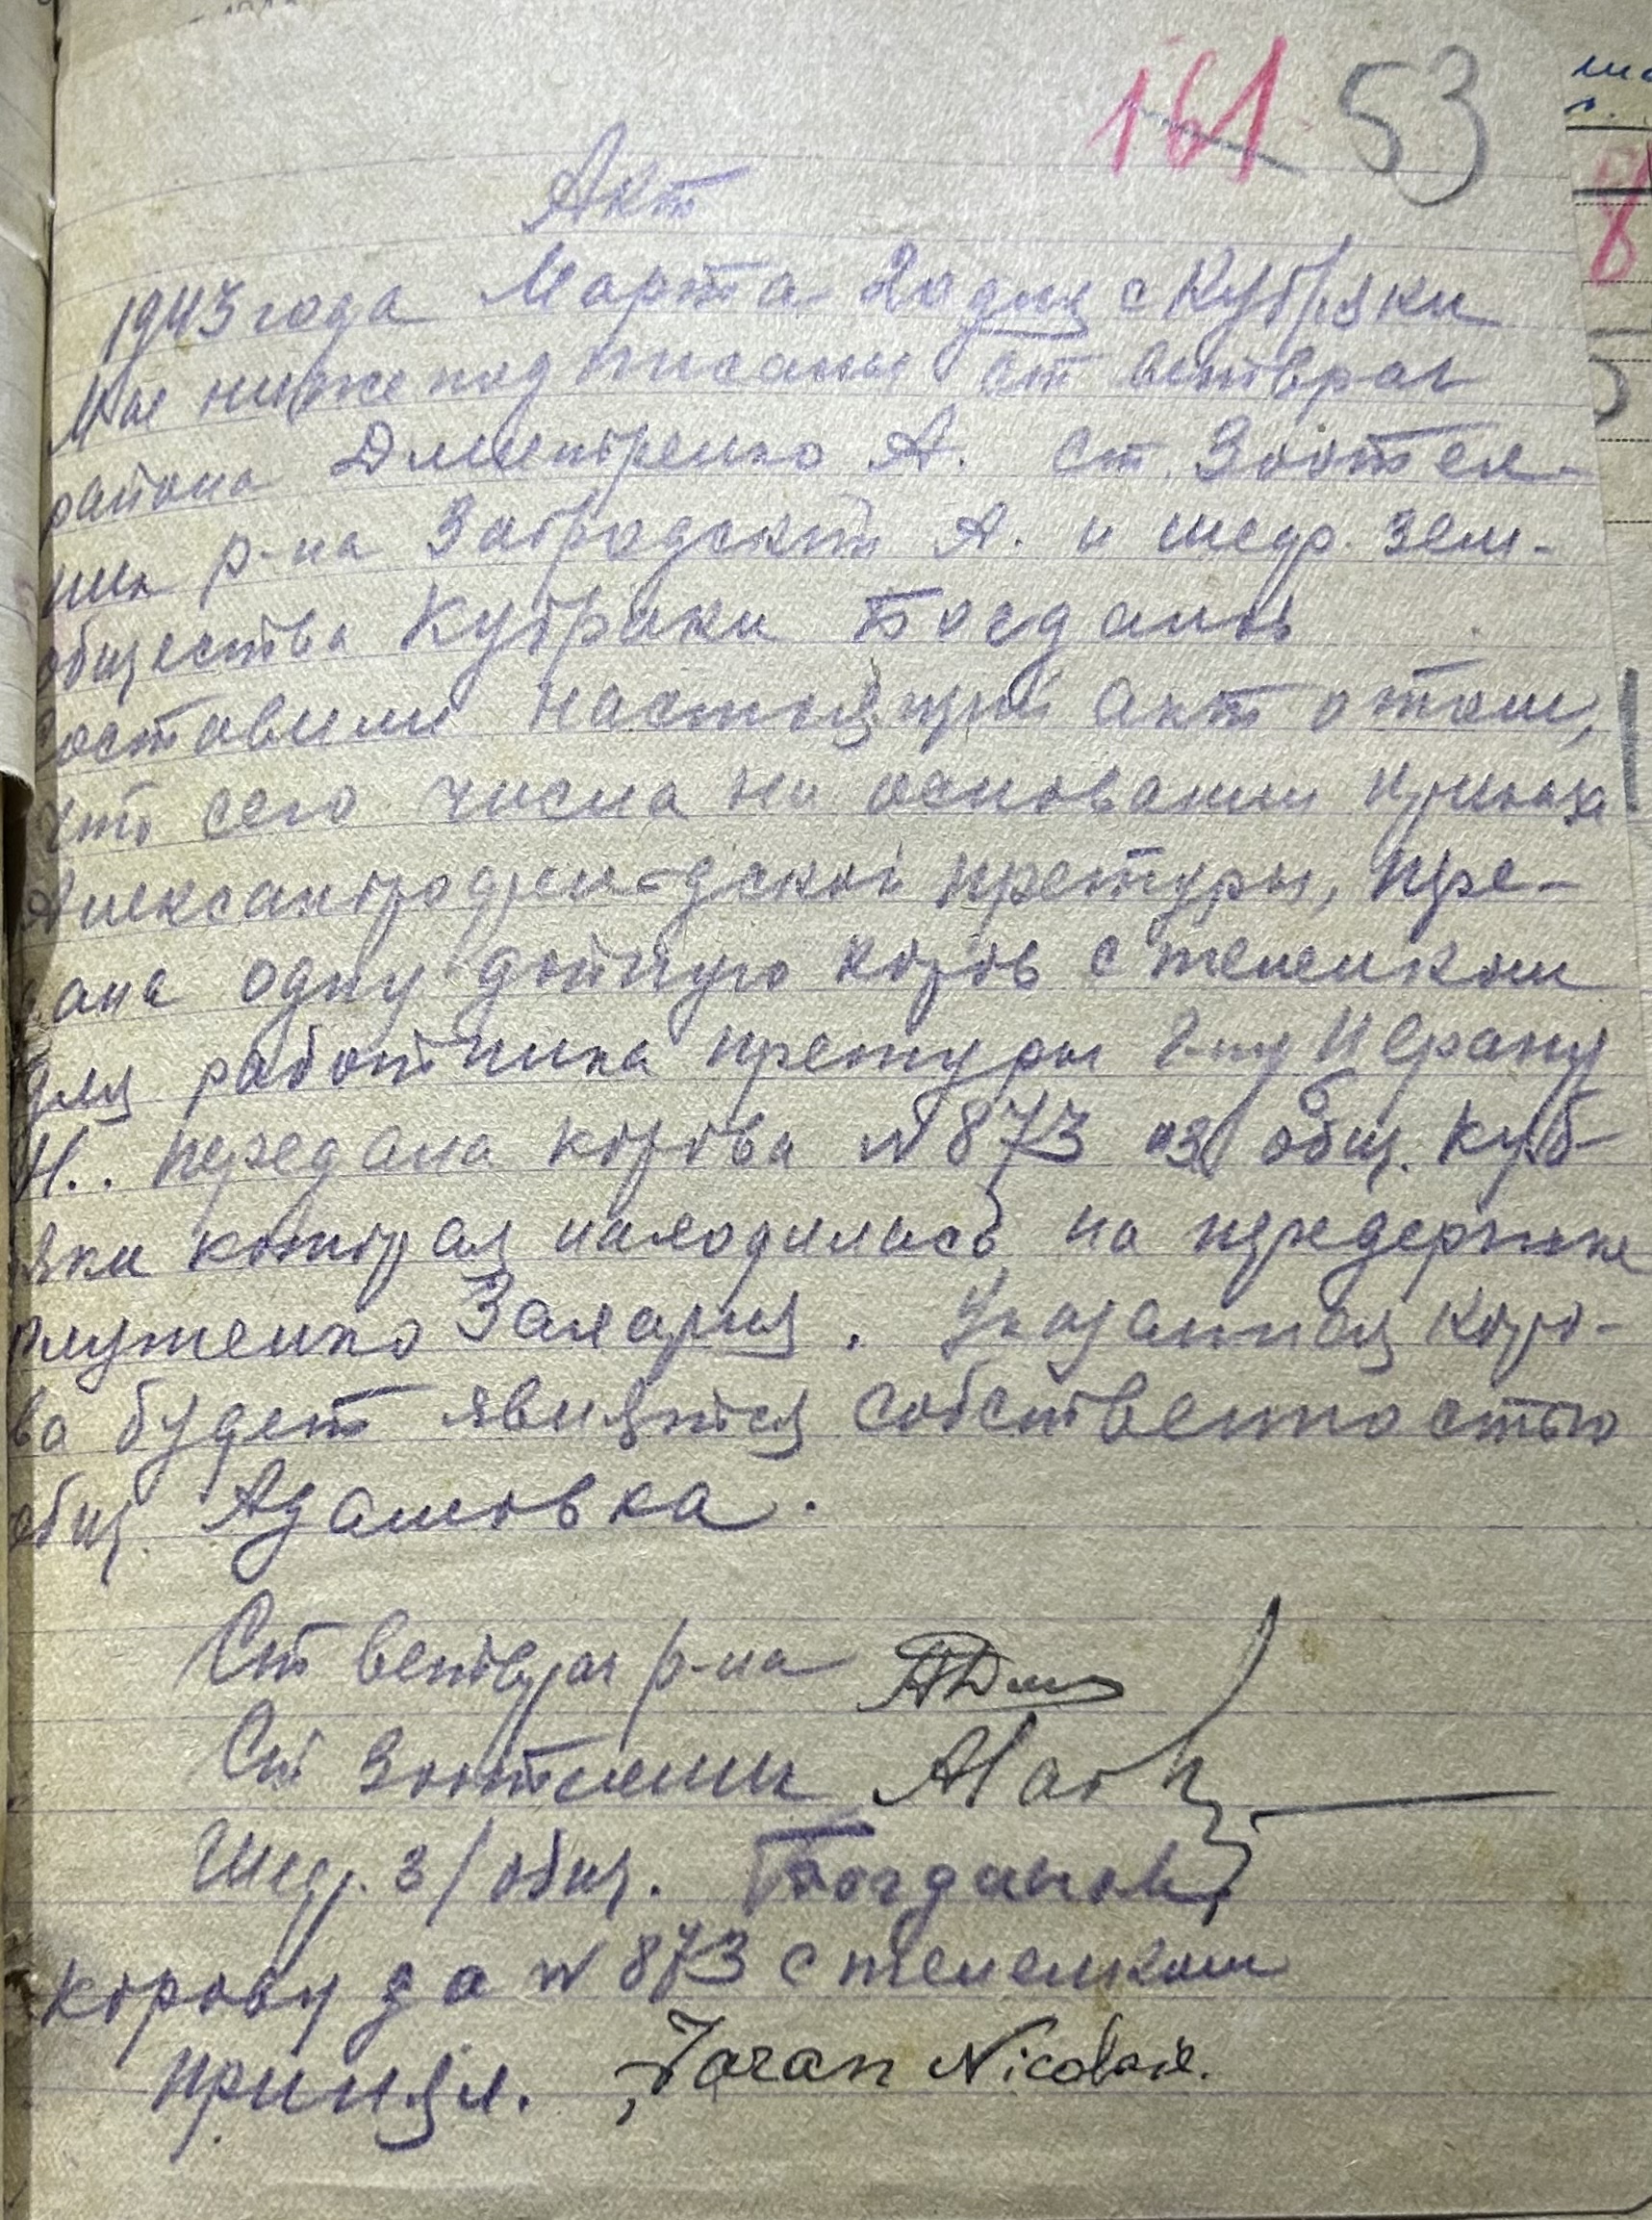 161 53
Акт
1943 года Марта 20 дня с Кубряки
Мы нижеподписаны ст ветврач
района Дмитренко А. ст. Зоотех-
ник р-на Загродский А. и шеф. зем-
общества Кубряки Богданов
составили настоящий акт о том,
что сего числа на основании приказа
Александродфен-дской претуры, пре-
дана одну дойную коров с теленком
для работника претуры г-ну
Н.. передана корова N 873 из общ. Куб-
ряки которая находилась на передержке
Захария. Указанная коро-
ва будет являятся собственностью
общ. Адамовка.
Ст ветврач р-на
Ст Зоотехник
Шеф. з/общ. Богданов
корову за N 873 с теленком
принял. Nicolaie.